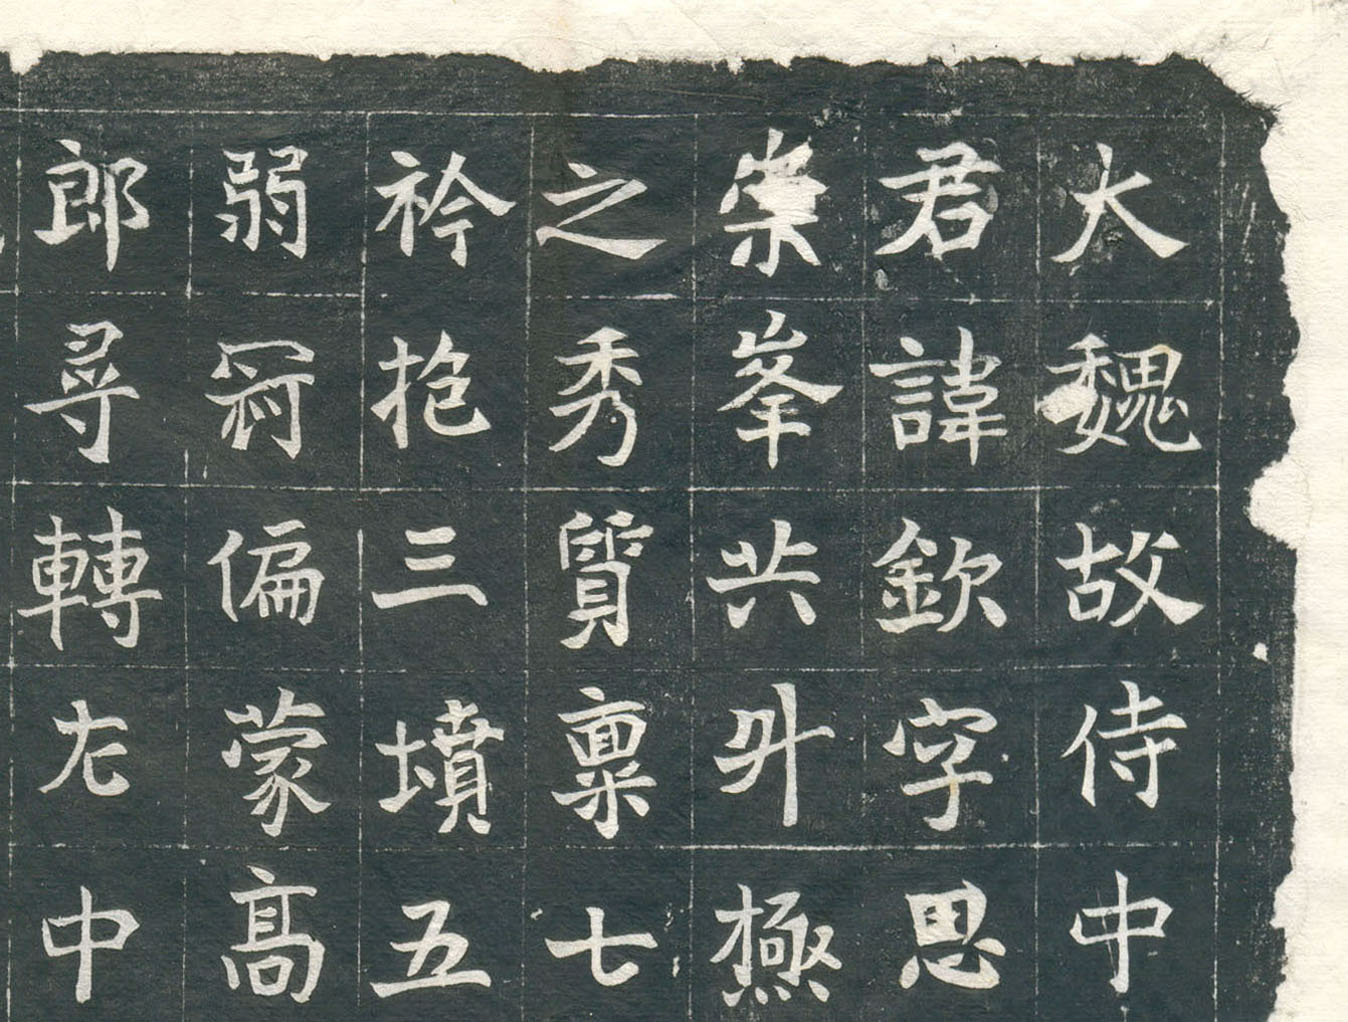 大魏故侍中
君諱欽字思
崇峯共升極
之秀質稟七
衿抱三墳五
弱冠偏蒙高
郎尋轉左中